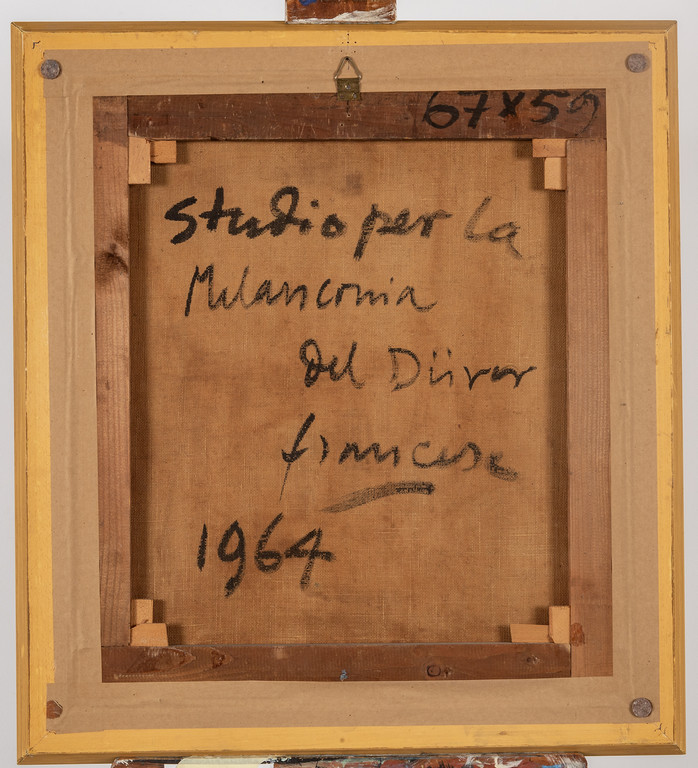 67x59
Studio per la
Melanconia
del Dürer
francese
1964